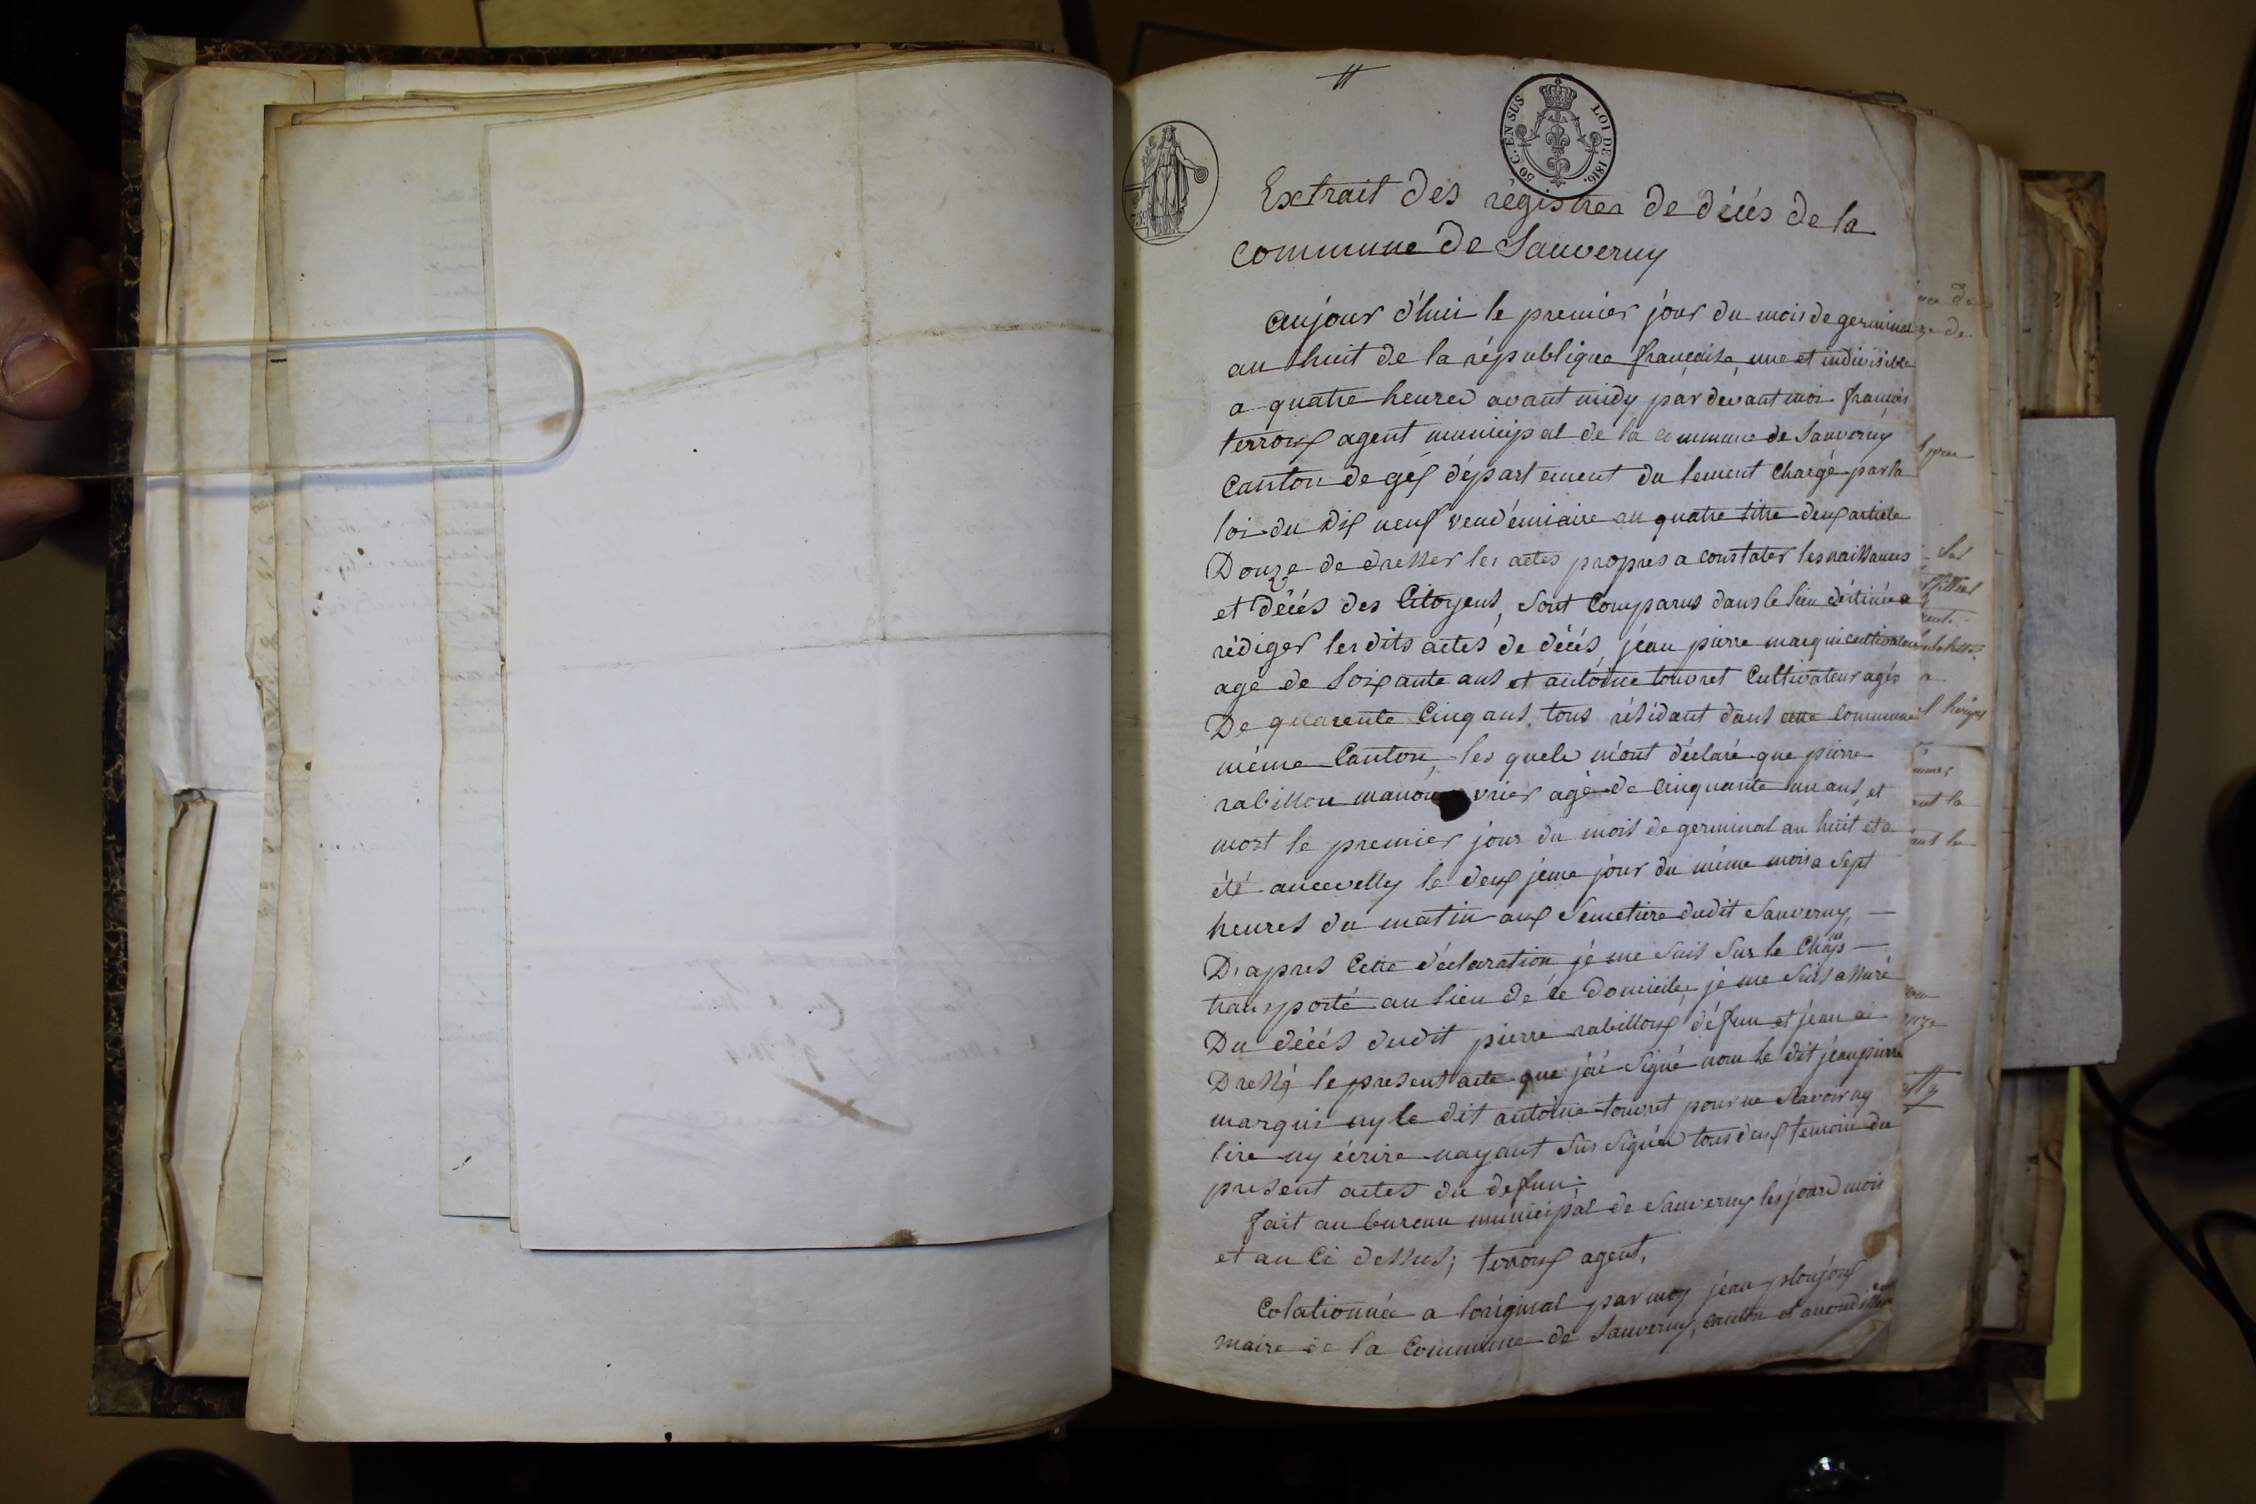 50 C. EN SUS LOI DE 1816.
Extrait des régistres de décés de la
commune de Sauverny
aujour d'hui le premier jour du mois de germinal
an huit de la république françaisе, une et indivisible
a quatre heures avant midy par devant moi françois
terroux agent municipal de la commune de Sauverny
Canton de gex département du lement Chargé par la
loi du dix neuf vendémiaire an quatre titre deux article
Douze de dresser les actes propres a constater les naissances
et décés des Citoyens, sont Comparus dans le lieu déstinée a
rédiger les dits actes de décés, jéan pierre marquis cultivateur
agé de soixante ans et antoine touvret Cultivateur agés
De quarente Cinq ans tous résidant dans cette commune
méme Canton, les quels m'ont déclaré que pierre
rabilloux manou vrier agé de Cinquante un ans, et
mort le premier jour du mois de germinal an huit et a
été ancevelly le deux jéme jour du méme mois a sept
heures du matin aux semetiere dudit Sauverny, —
D'apres Cette déclaration, jé me suis sur le Chāps —
transporté au lieu de ce domicile jé me suis assuré
Du décés dudit pierre rabilloux défun et jéan ai
Dressé le present acte que j'ai signé nom le dit jéan pierre
marquis ny le dit antoine touvret pour ne sçavoir ny
lire ny écrire nayant sus signéz tous deux temoins du
present actes du defun.
fait au bureau municipal de Sauverny les jours mois
et an Ci dessus; terroux agent,
Colationnée a loriginal par moy jéan ploujoux
maire de la Commune de Sauverny, canton et